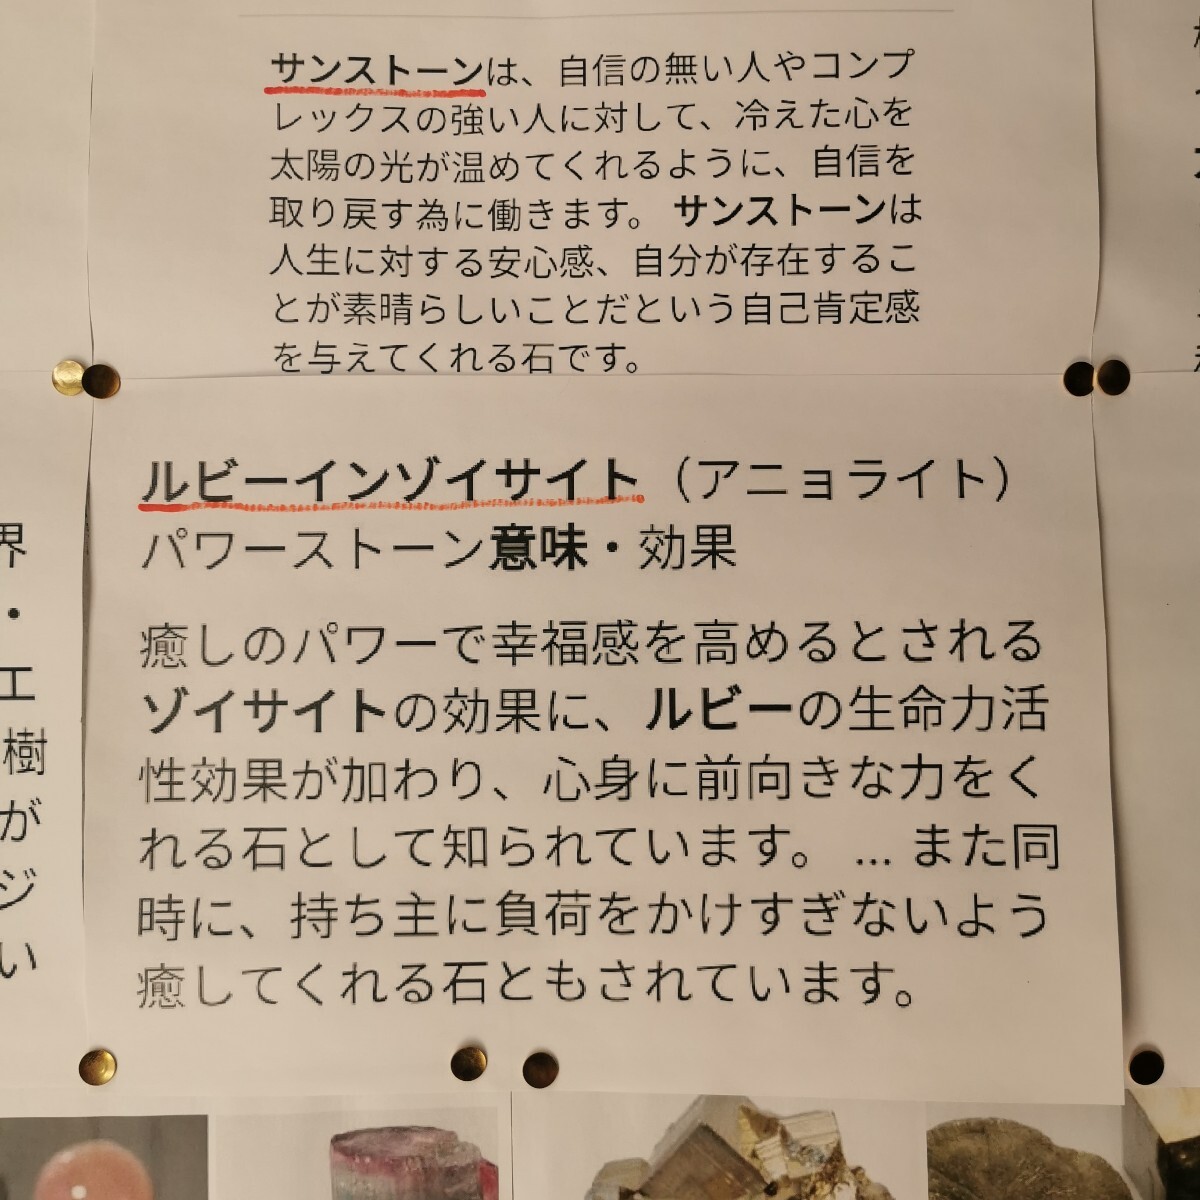 サンストーンは、自信の無い人やコンプ
レックスの強い人に対して、冷えた心を
太陽の光が温めてくれるように、自信を
取り戻す為に働きます。 サンストーンは
人生に対する安心感、自分が存在するこ
とが素晴らしいことだという自己肯定感
を与えてくれる石です。
ルビーインゾイサイト（アニョライト）
パワーストーン意味・効果
癒しのパワーで幸福感を高めるとされる
ゾイサイトの効果に、ルビーの生命力活
性効果が加わり、心身に前向きな力をく
れる石として知られています。 ... また同
時に、持ち主に負荷をかけすぎないよう
癒してくれる石ともされています。
界
・
エ
樹
が
ジ
い